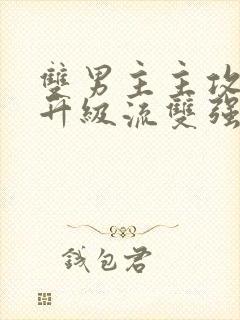 雙男主主攻
升級流雙強
錢包君